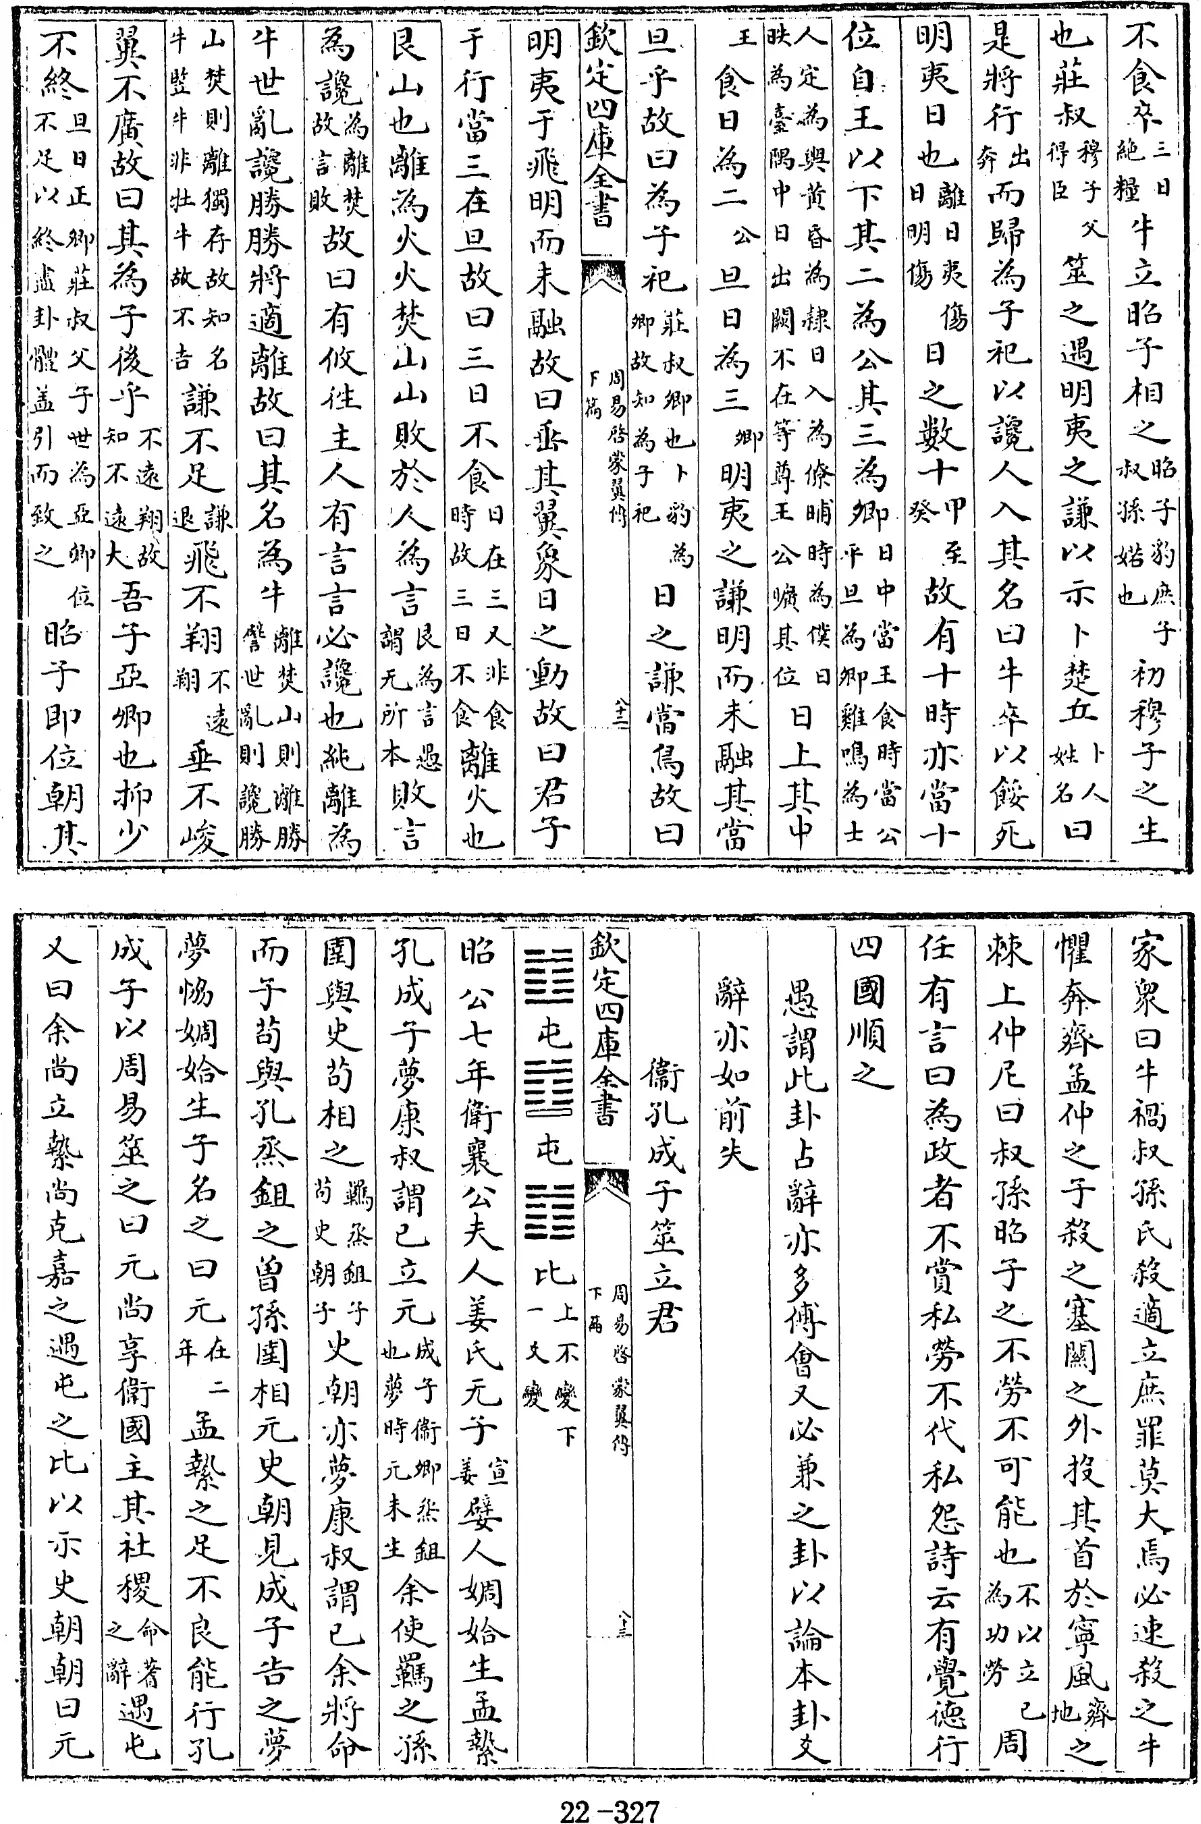 不食卒三日絶糧牛立昭子相之昭子豹庶子叔孫婼也初穆子之生
也莊叔穆子父得臣筮之遇明夷之謙以示卜楚丘卜人姓名曰
是將行出奔而歸為子祀以讒人入其名曰牛卒以餒死
明夷日也離日夷傷日明傷日之數十甲至癸故有十時亦當十
位自王以下其二為公其三為卿日中當王食時當公平旦為卿雞鳴為士
人定為輿黄昏為隸日入為僚晡時為僕日昳為臺隅中日出闕不在等尊王公曠其位日上其中
王食日為二公旦日為三卿明夷之謙明而未融其當
旦乎故曰為子祀莊叔卿也卜豹為卿故知為子祀日之謙當鳥故曰
欽定四庫全書 周易啓蒙翼傳下篇 八十二
明夷于飛明而未融故曰垂其翼象日之動故曰君子
于行當三在旦故曰三日不食日在三又非食時故三日不食離火也
艮山也離為火火焚山山敗於人為言艮為言敗言
為讒為離焚故言敗故曰有攸往主人有言言必讒也純離為
牛世亂讒勝勝將適離故曰其名為牛離焚山則離勝譬世亂則讒勝
山焚則離獨存故知名牛豎牛非牡牛故不吉謙不足謙退飛不翔不遠翔垂不峻
翼不廣故曰其為子後乎不遠翔故知不遠大吾子亞卿也抑少
不終旦日正卿莊叔父子世為亞卿位不足以終盡卦體盖引而致之昭子即位朝其
家衆曰牛禍叔孫氏殺適立庶罪莫大焉必速殺之牛
懼奔齊孟仲之子殺之塞關之外投其首於寧風齊地之
棘上仲尼曰叔孫昭子之不勞不可能也不以立己為功勞周
任有言曰為政者不賞私勞不代私怨詩云有覺德行
四國順之
愚謂此卦占辭亦多傅會又必兼之卦以論本卦爻
辭亦如前失
衛孔成子筮立君
欽定四庫全書 周易啓蒙翼傳下篇 八十三
屯 屯 比上不變下一爻變
昭公七年衛襄公夫人姜氏无子宣姜嬖人婤姶生孟縶
孔成子夢康叔謂已立元成子衛卿烝鉏也夢時元未生余使羈之孫
圉與史苟相之羈烝鉏子苟史朝子史朝亦夢康叔謂已余將命
而子苟與孔烝鉏之曾孫圉相元史朝見成子告之夢
夢恊婤姶生子名之曰元在二年孟縶之足不良能行孔
成子以周易筮之曰元尚享衛國主其社稷命蓍之辭遇屯
又曰余尚立縶尚克嘉之遇屯之比以示史朝朝曰元
22-327